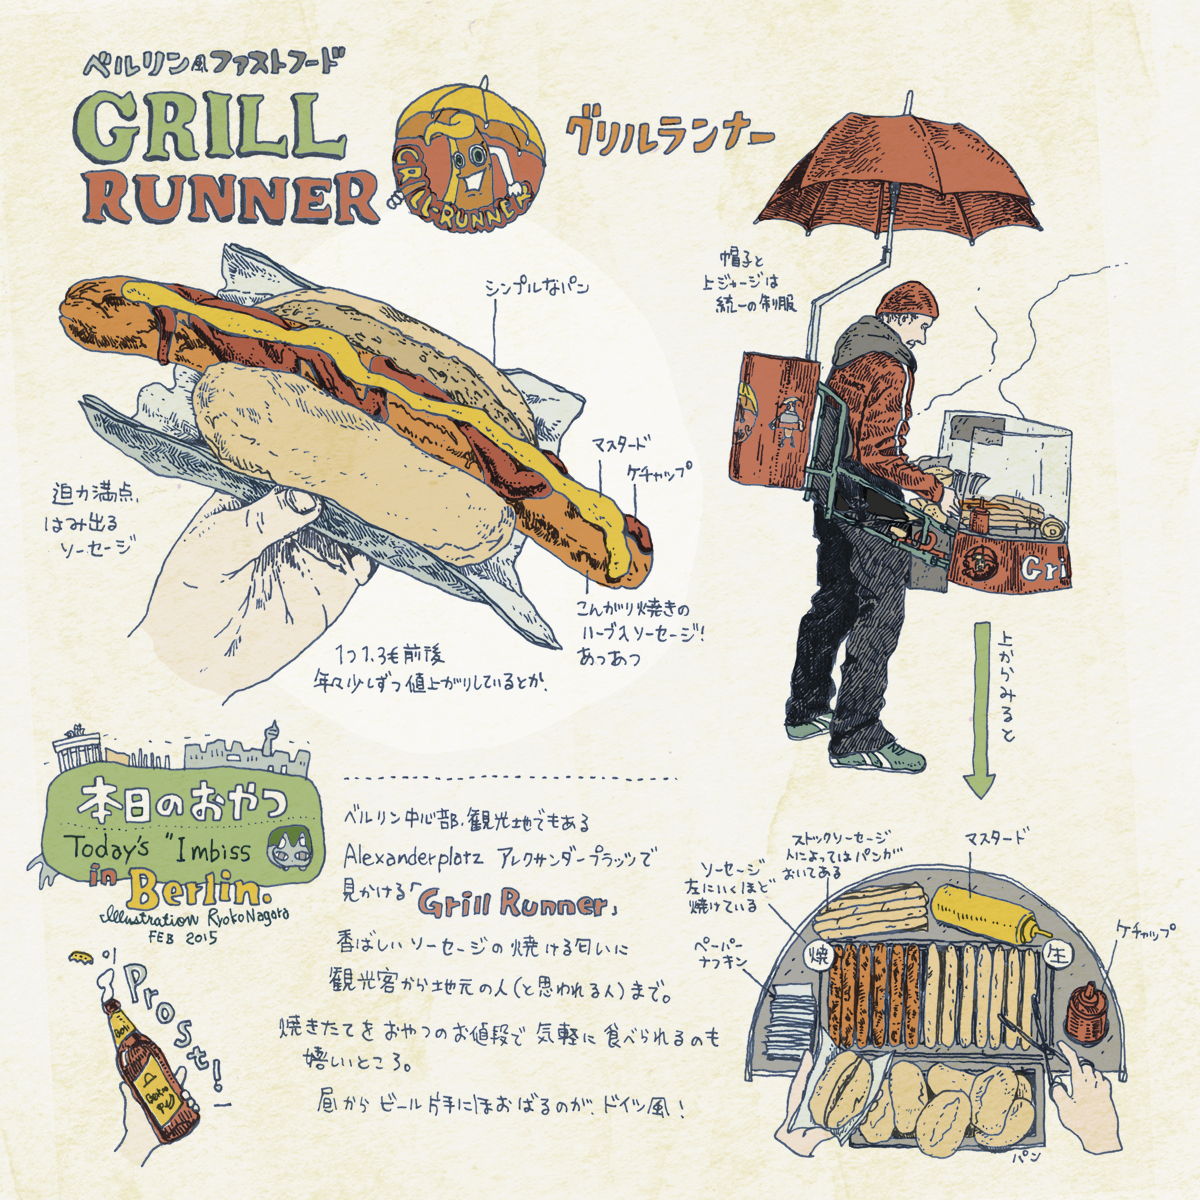 ベルリン風ファストフード
GRILL
RUNNER
GRILL-RUNNER
グリルランナー
シンプルなパン
マスタード
ケチャップ
迫力満点、
はみ出る
ソーセージ
こんがり焼きの
ハーブ入ソーセージ!
あつあつ
1つ1.3€前後
年々少しずつ値上がりしているとか、
帽子と
上ジャージは
統一の制服
Gri
上からみると
本日のおやつ
Today's "Imbiss
in
Berlin.
Illustration Ryoko Nagara
FEB 2015
Prost!
ベルリン中心部、観光地でもある
Alexanderplatz アレクサンダープラッツで
見かける「Grill Runner」
香ばしいソーセージの焼ける匂いに
観光客から地元の人(と思われる人)まで。
焼きたてをおやつのお値段で気軽に食べられるのも
嬉しいところ。
昼からビール片手にほおばるのが、ドイツ風!
ストックソーセージ
人によってはパンが
おいてある
マスタード
ソーセージ
左にいくほど
焼けている
ペーパー
ナフキン
ケチャップ
焼
生
パン